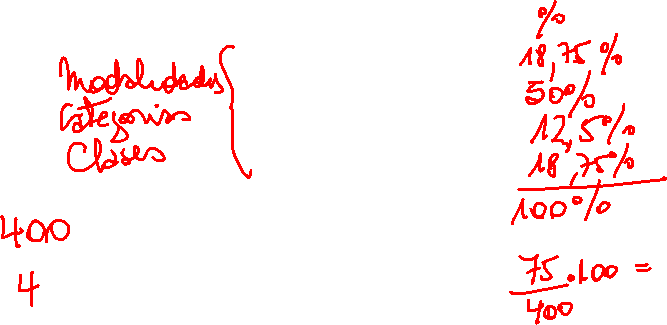 Modalidades
Categorias
Clases
400
4
%
18,75%
50%
12,5%
18,75%
100%
75/400 .100 =